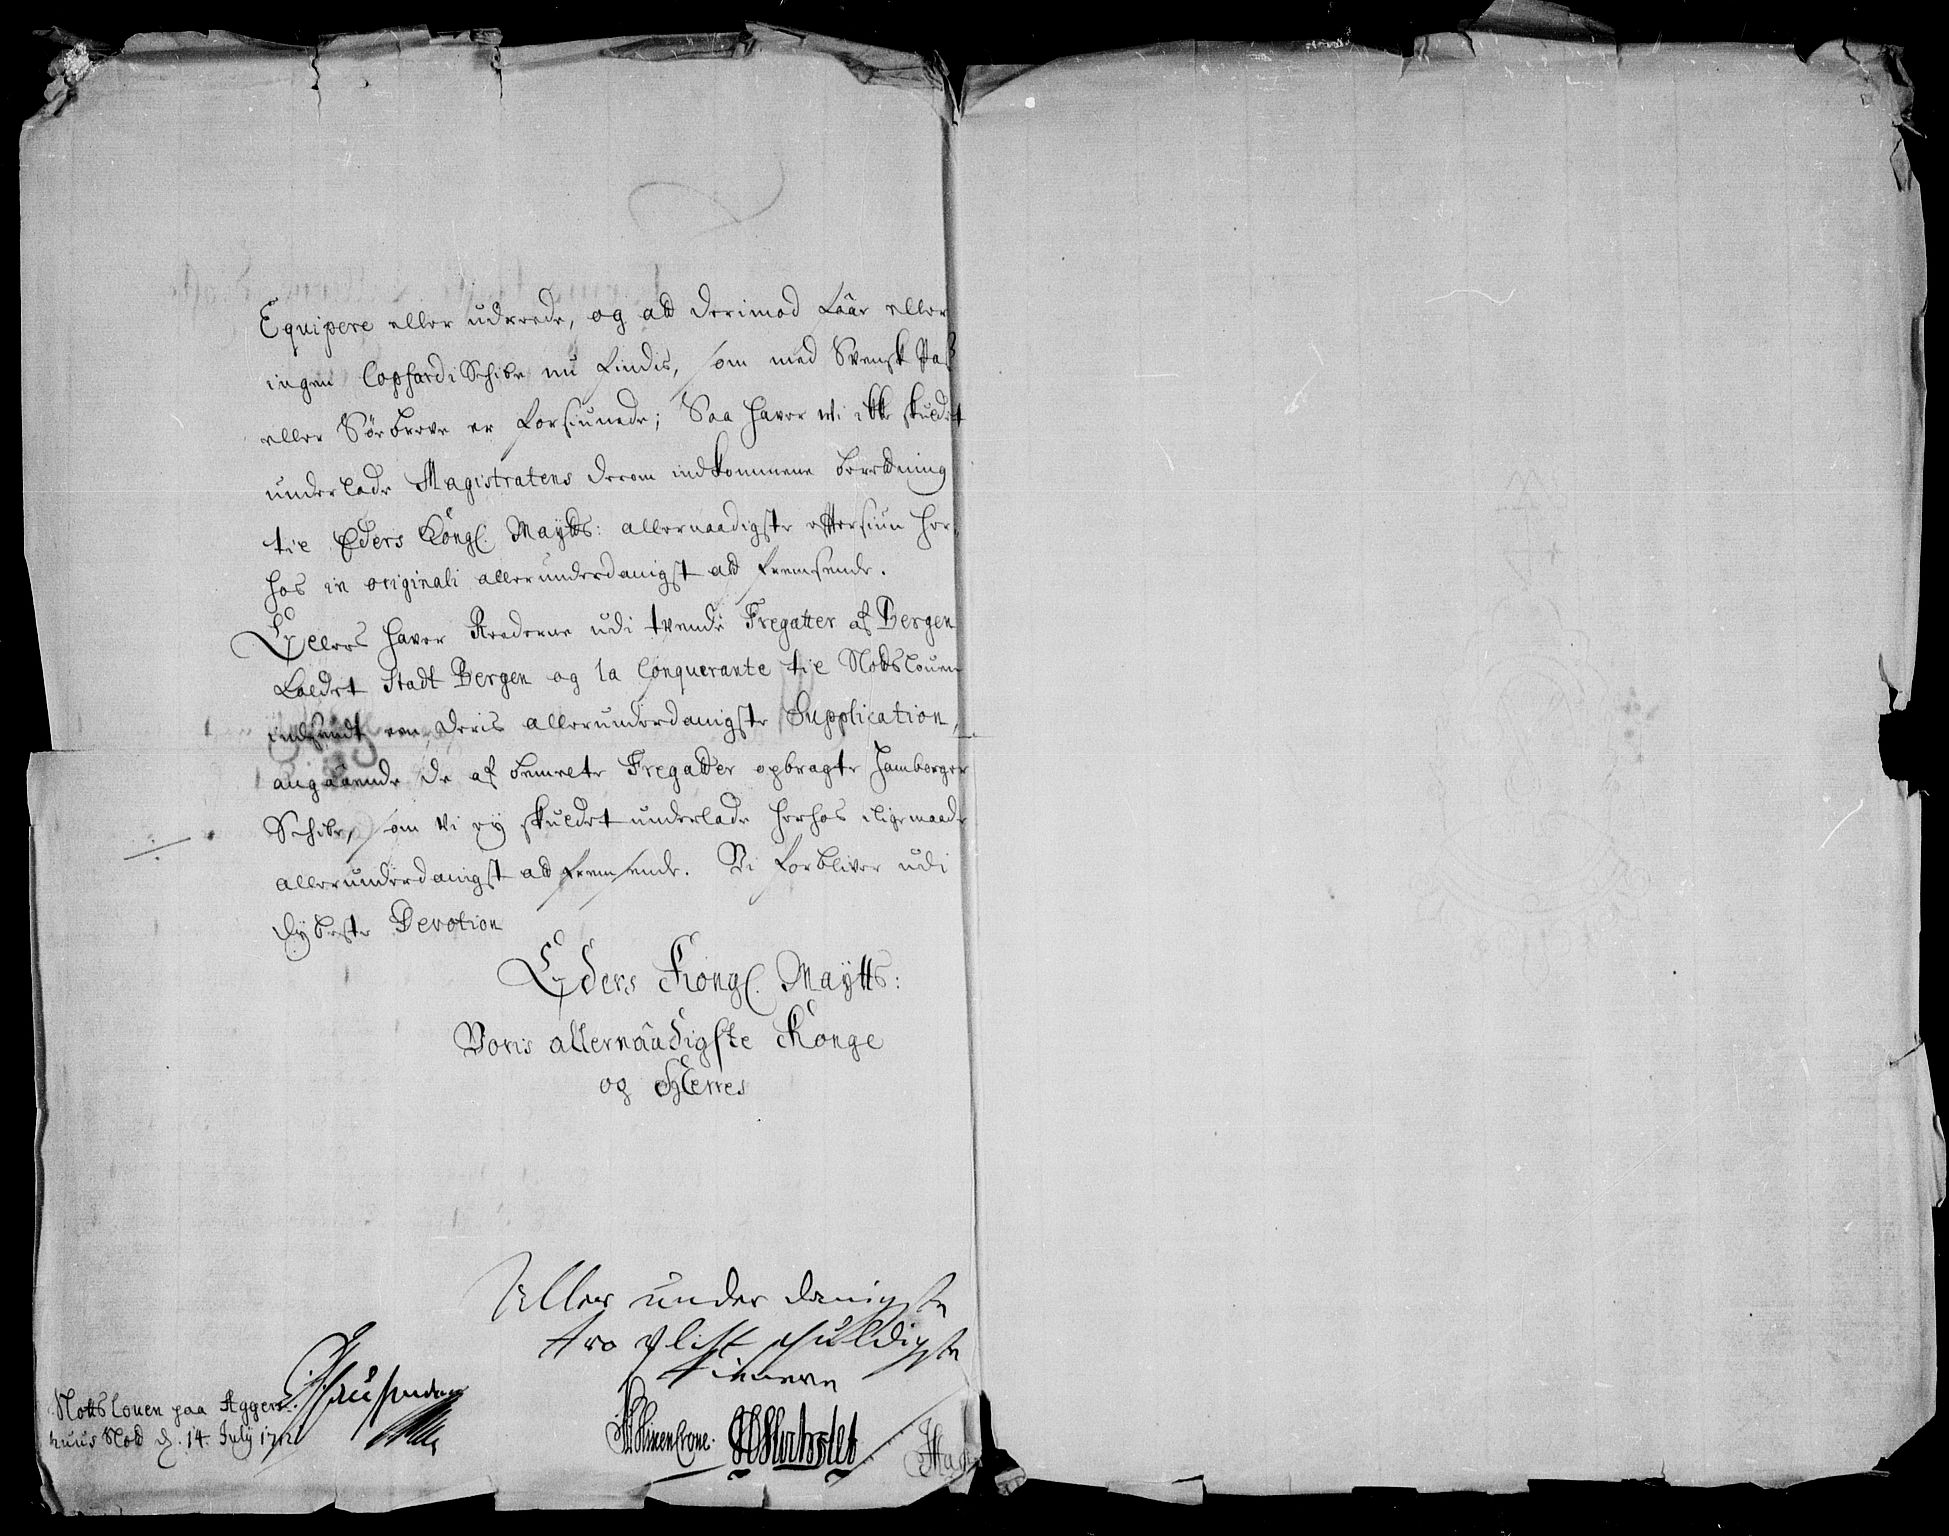 Equipere eller udreede, og att derimod faar eller
ingen Copfardi Schibe nu findis, som med Svensk Pas
eller Søebreve er forsiunede; Saa hafver vi icke skuldet
underlade Magistratens derom indkommene beretning
til Eders Kongl. Maÿtts: allernaadigste eftersiun her-
hos in originali allerunderdanigst att fremsende.
Ellers hafver Reederne udi tvende Fregatter af Bergen
kaldet Stadt Bergen og la Conquerante til Slotsloven
indsendt een deris allerunderdanigste Supplication,
angaaende de af bemelte Fregatter opbragte Hamborger
Schibe, som vi eÿ skuldet underlade herhos iligemaade
allerunderdanigst att fremsende. Vi forbliver udi
dÿbeste Devotion
Eders Kongl. Maÿtts:
Voris allernaadigste Konge
og Herres
Aller under danigste
tro pligt skuldigste
tienere
Slotsloven paa Aggers-
huus Slot d. 14. Julÿ 1712